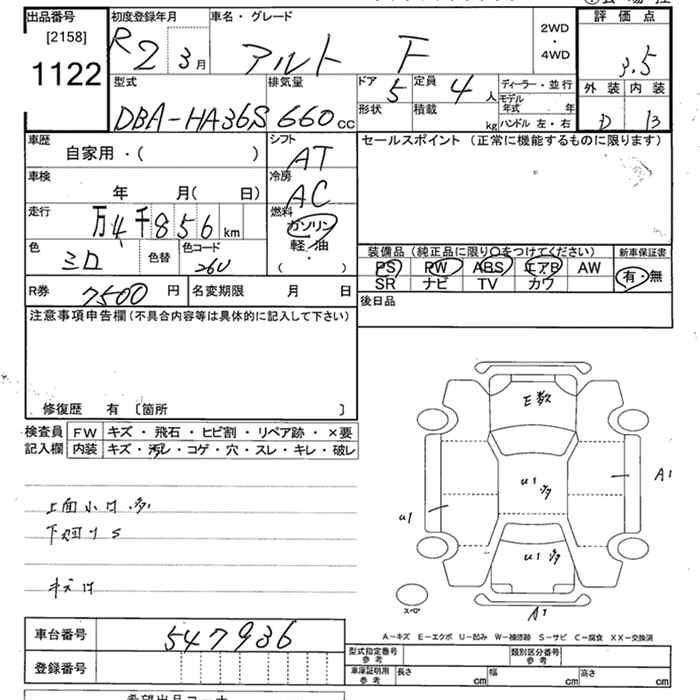 出品番号 初度登録年月 車名・グレード 2WD 評価点
[2158] R2 3月 アルト F ・ 3.5
1122 4WD 外装 内装
D B
型式 排気量 ドア 5 定員 4人 ディーラー・並行
モデル年式 年
DBA-HA36S 660cc 形状 積載 kg ハンドル 左・右
車歴 シフト セールスポイント (正常に機能するものに限ります)
自家用・( ) AT
車検 冷房
年 月( 日) AC
走行 燃料
万4千856km ガソリン
軽・油
・
( )
色 ミロ 色替 色コード 26U
装備品 (純正品に限り○をつけてください) 新車保証書
PS PW ABS エアB AW 有・無
SR ナビ TV カワ
R券 7500円 名変期限 月 日 後日品
注意事項申告欄(不具合内容等は具体的に記入して下さい)
修復歴 有 〔箇所 〕
検査員 FW キズ・飛石・ヒビ割・リペア跡・×要
記入欄 内装 キズ・汚レ・コゲ・穴・スレ・キレ・破レ
E数
U1 多
A1
U1
U1 多
A1
上面小キ多
下廻りS
キズ
スペア
A-キズ E-エクボ U-凹み W-補修跡 S-サビ C-腐食 XX-交換済
車台番号 547936
登録番号
型式指定番号 参考 類別区分番号 参考
車庫証明用 参考 長さ cm 幅 cm 高さ cm
希望出品コーナー